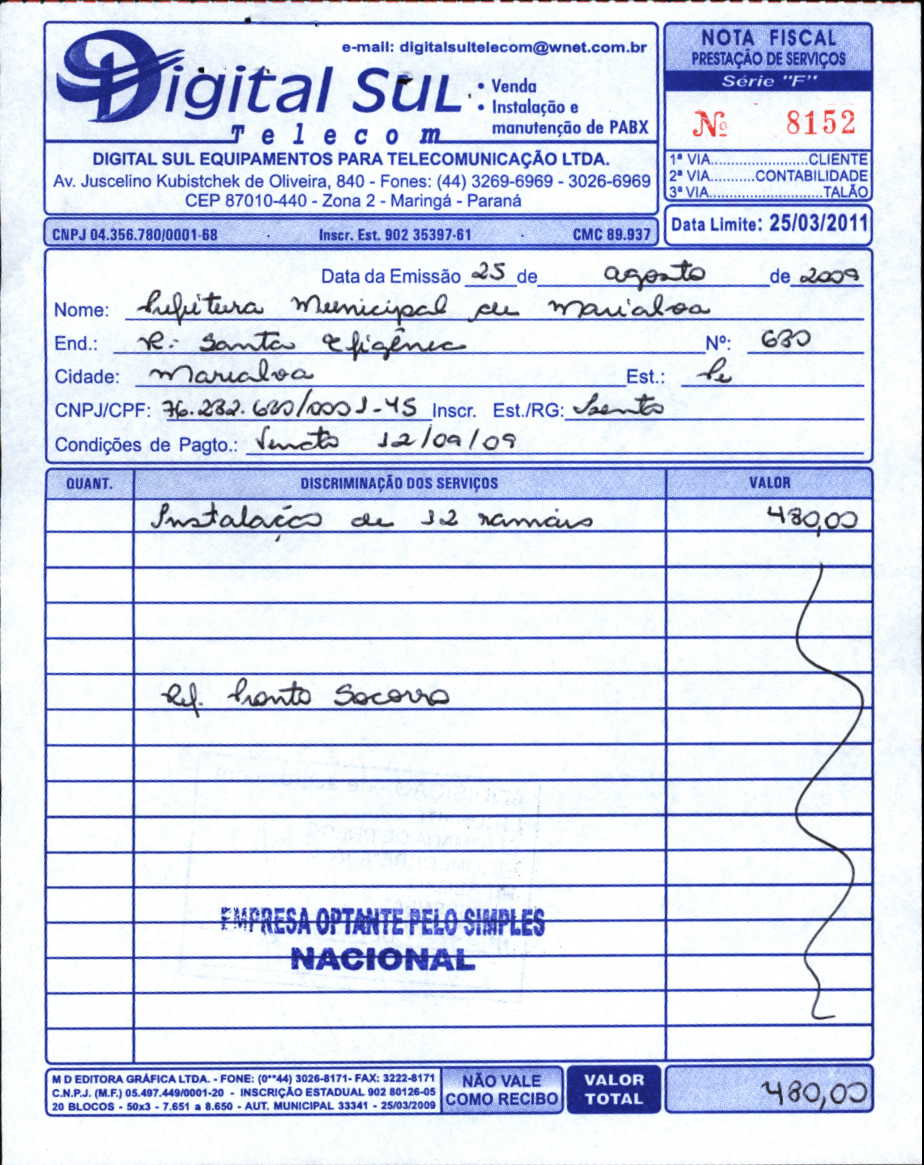 e-mail: digitalsultelecom@wnet.com.br
Digital Sul
Telecom
• Venda
• Instalação e
manutenção de PABX
DIGITAL SUL EQUIPAMENTOS PARA TELECOMUNICAÇÃO LTDA.
Av. Juscelino Kubistchek de Oliveira, 840 - Fones: (44) 3269-6969 - 3026-6969
CEP 87010-440 - Zona 2 - Maringá - Paraná
NOTA FISCAL
PRESTAÇÃO DE SERVIÇOS
Série "F"
Nº 8152
1ª VIA.......................CLIENTE
2ª VIA...........CONTABILIDADE
3ª VIA..........................TALÃO
CNPJ 04.356.780/0001-68 Inscr. Est. 902 35397-61 CMC 89.937
Data Limite: 25/03/2011
Data da Emissão 25 de agosto de 2009
Nome: Prefeitura Municipal de Marialva
End.: R. Santa Efigênia Nº: 680
Cidade: Marialva Est.: Pr
CNPJ/CPF: 76.282.680/0001-45 Inscr. Est./RG: Isento
Condições de Pagto.: Vencto 12/09/09
QUANT. DISCRIMINAÇÃO DOS SERVIÇOS VALOR
Instalação de 12 ramais 480,00
Ref. Pronto Socorro
EMPRESA OPTANTE PELO SIMPLES
NACIONAL
M D EDITORA GRÁFICA LTDA. - FONE: (0**44) 3026-8171- FAX: 3222-8171
C.N.P.J. (M.F.) 05.497.449/0001-20 - INSCRIÇÃO ESTADUAL 902 80126-05
20 BLOCOS - 50x3 - 7.651 a 8.650 - AUT. MUNICIPAL 33341 - 25/03/2009
NÃO VALE
COMO RECIBO
VALOR
TOTAL
480,00